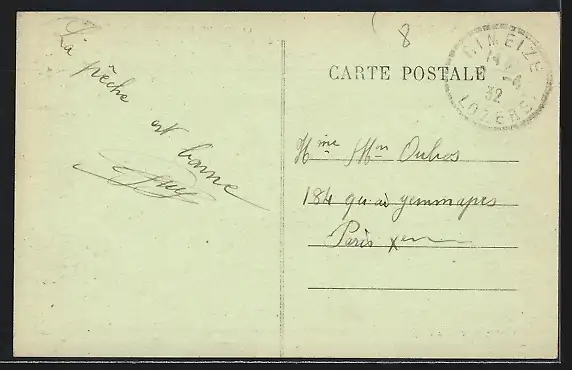 La pêche
est bonne
8
CARTE POSTALE
RIMEIZE
14
-4
32
LOZERE
Mme & Mr Dubos
184 quai jemmapes
Paris xeme